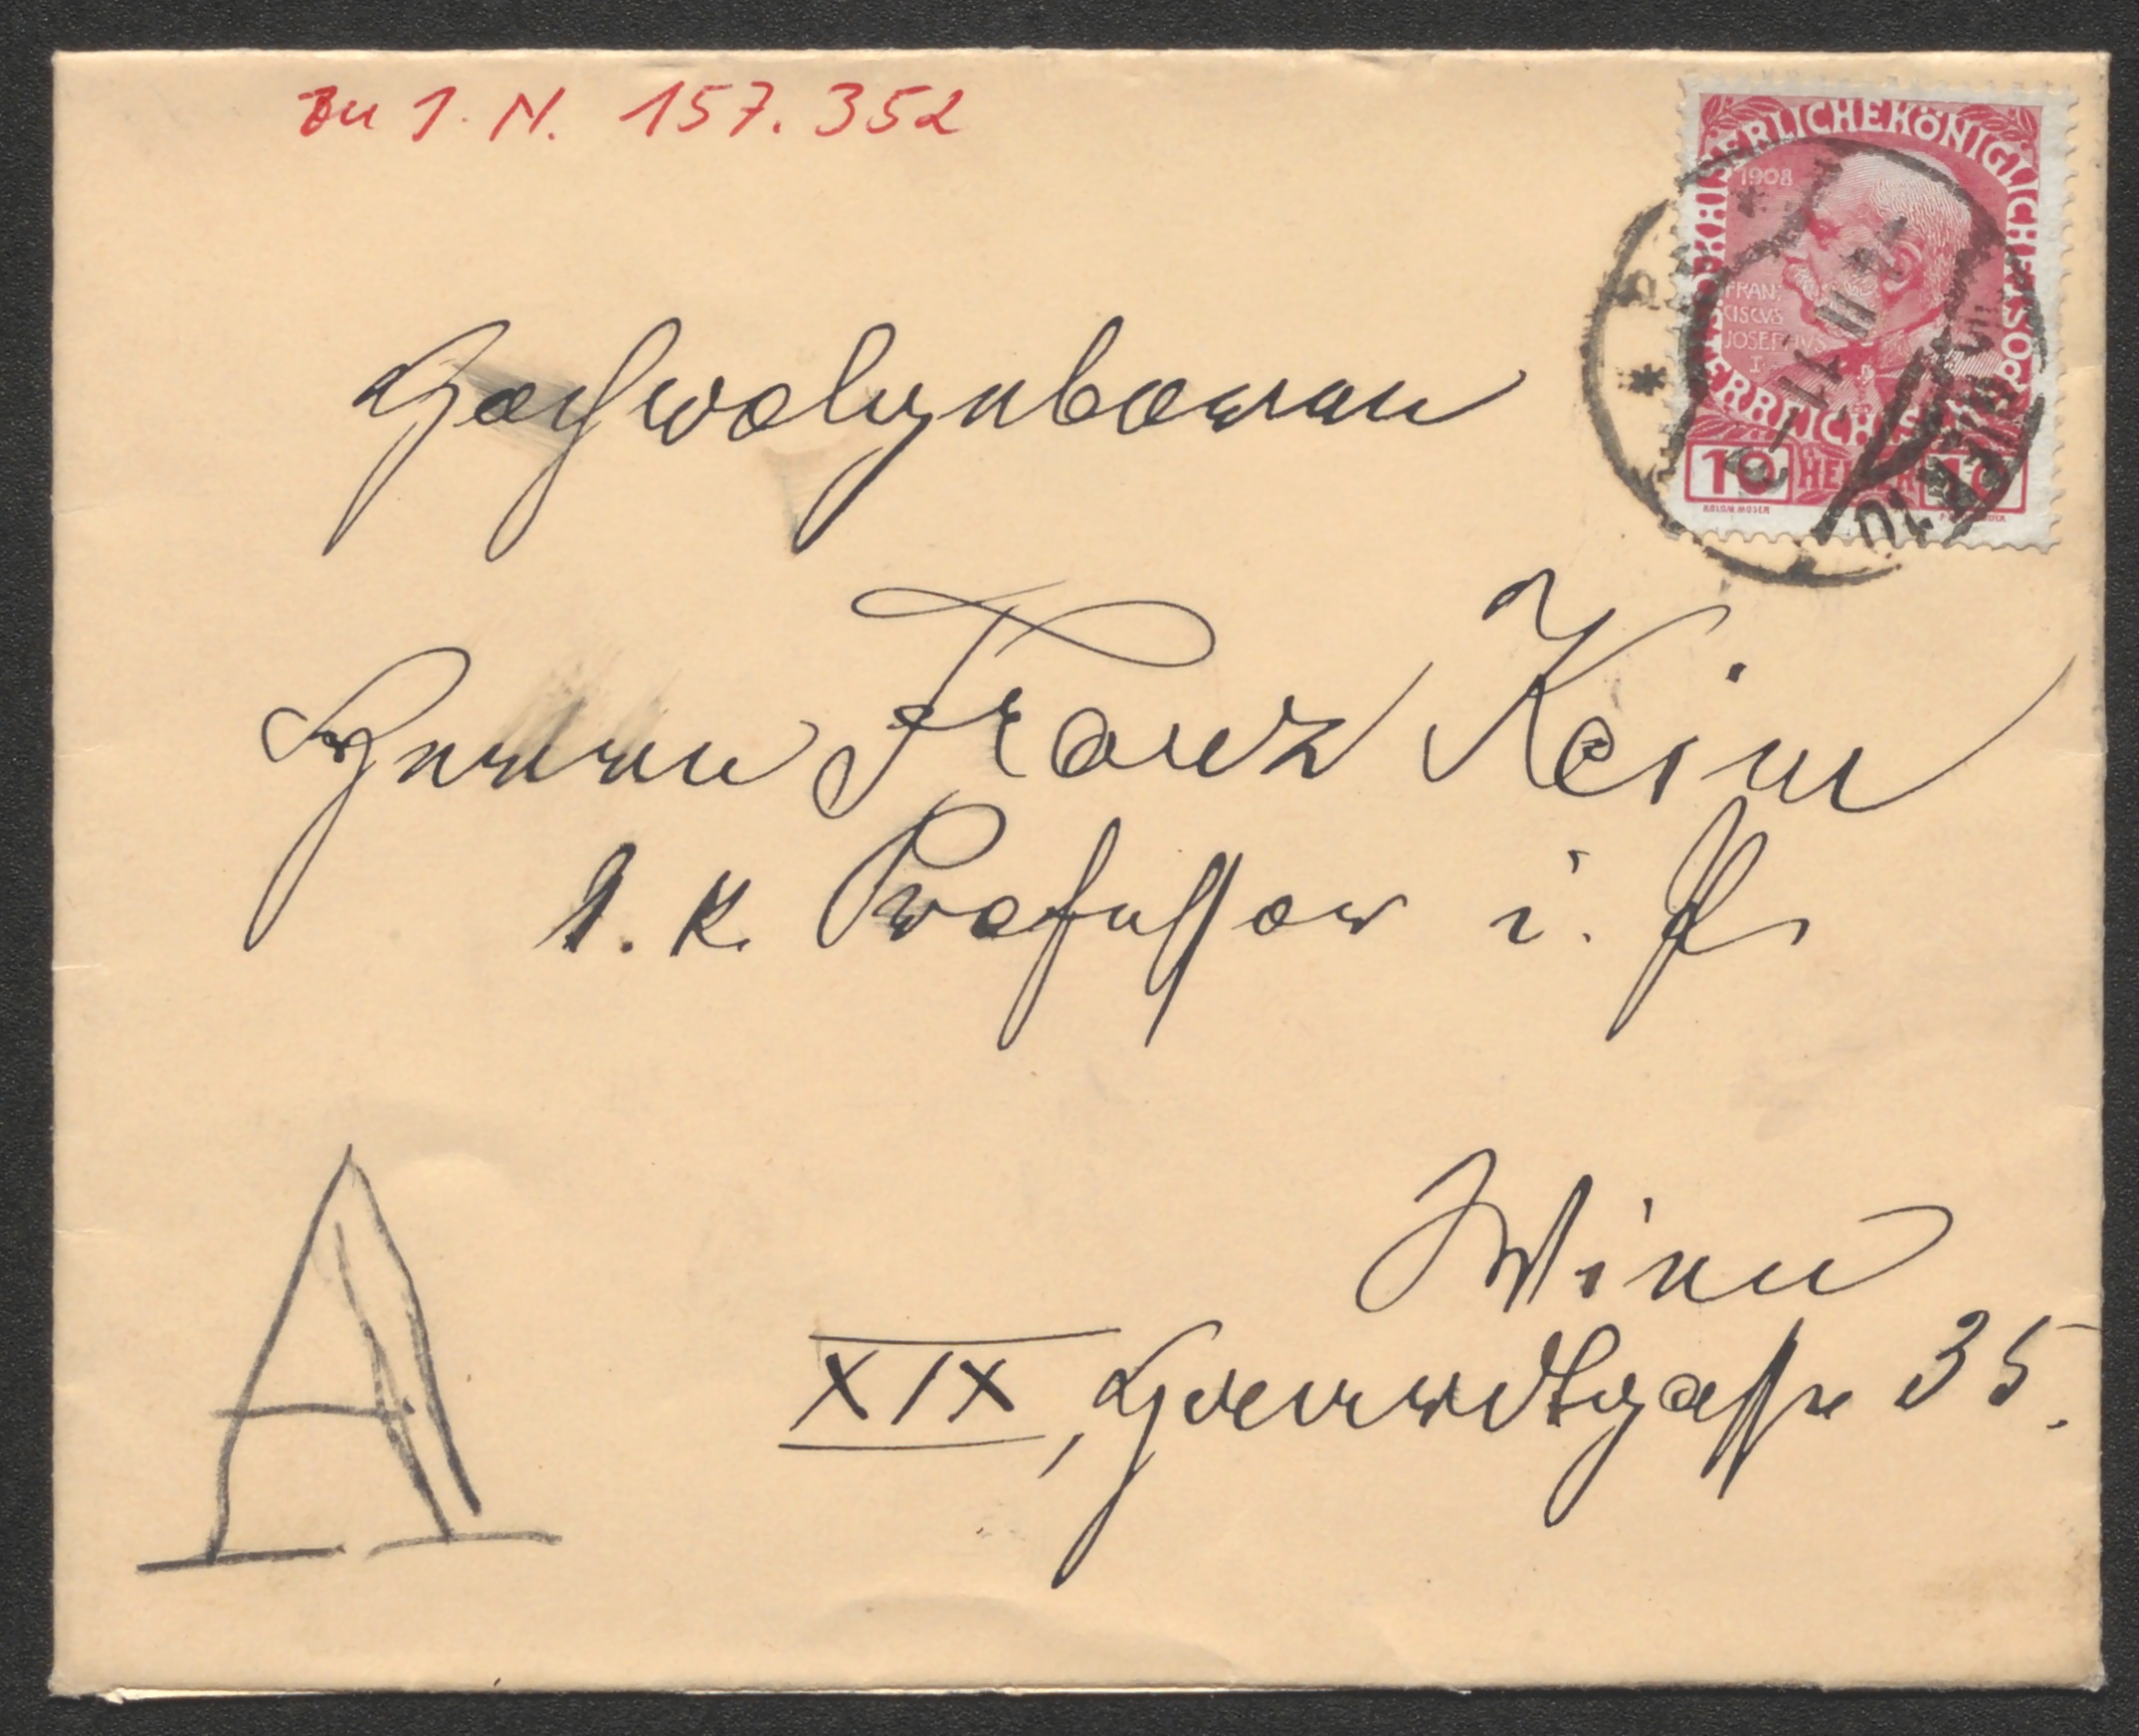 Zu I. N. 157.352
KAISERLICHE KÖNIGLICHE ÖSTERREICHISCHE POST
1908
FRAN-
CISCVS
JOSEPHVS
I
10 HELLER 10
KOLOM MOSER
Hochwolgeboren
Herrn Franz Keim
k. k. Professor i. P.
Wien
XIX, 35.
A